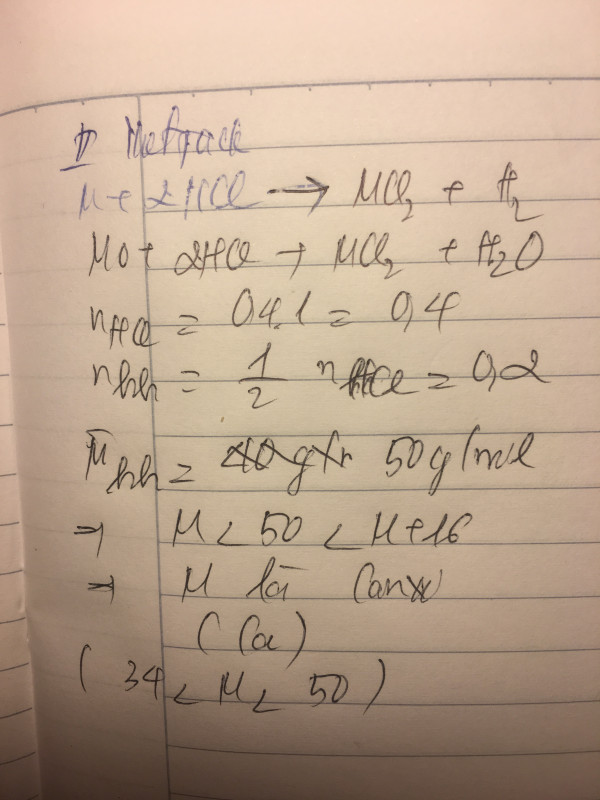 M + 2HCl → MCl₂ + H₂
MO + 2HCl → MCl₂ + H₂O
nHCl = 0,4.1 = 0,4
nhh = 1/2 nHCl = 0,2
M̄hh = 50g/mol
⇒ M < 50 < M+16
⇒ M là Canxi
(Ca)
(34 < M < 50)